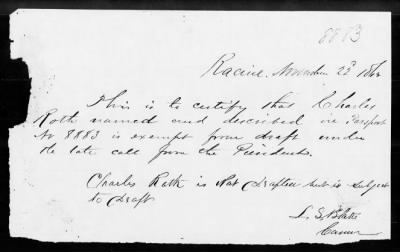 8883
Racine, November 22d 186
This is to certify that Charles
Roth named and described in Passport
No 8883 is exempt from draft under
the late call from the Presidents.
Charles Roth is Not Drafted but is subject
to Draft
L. S. Blake